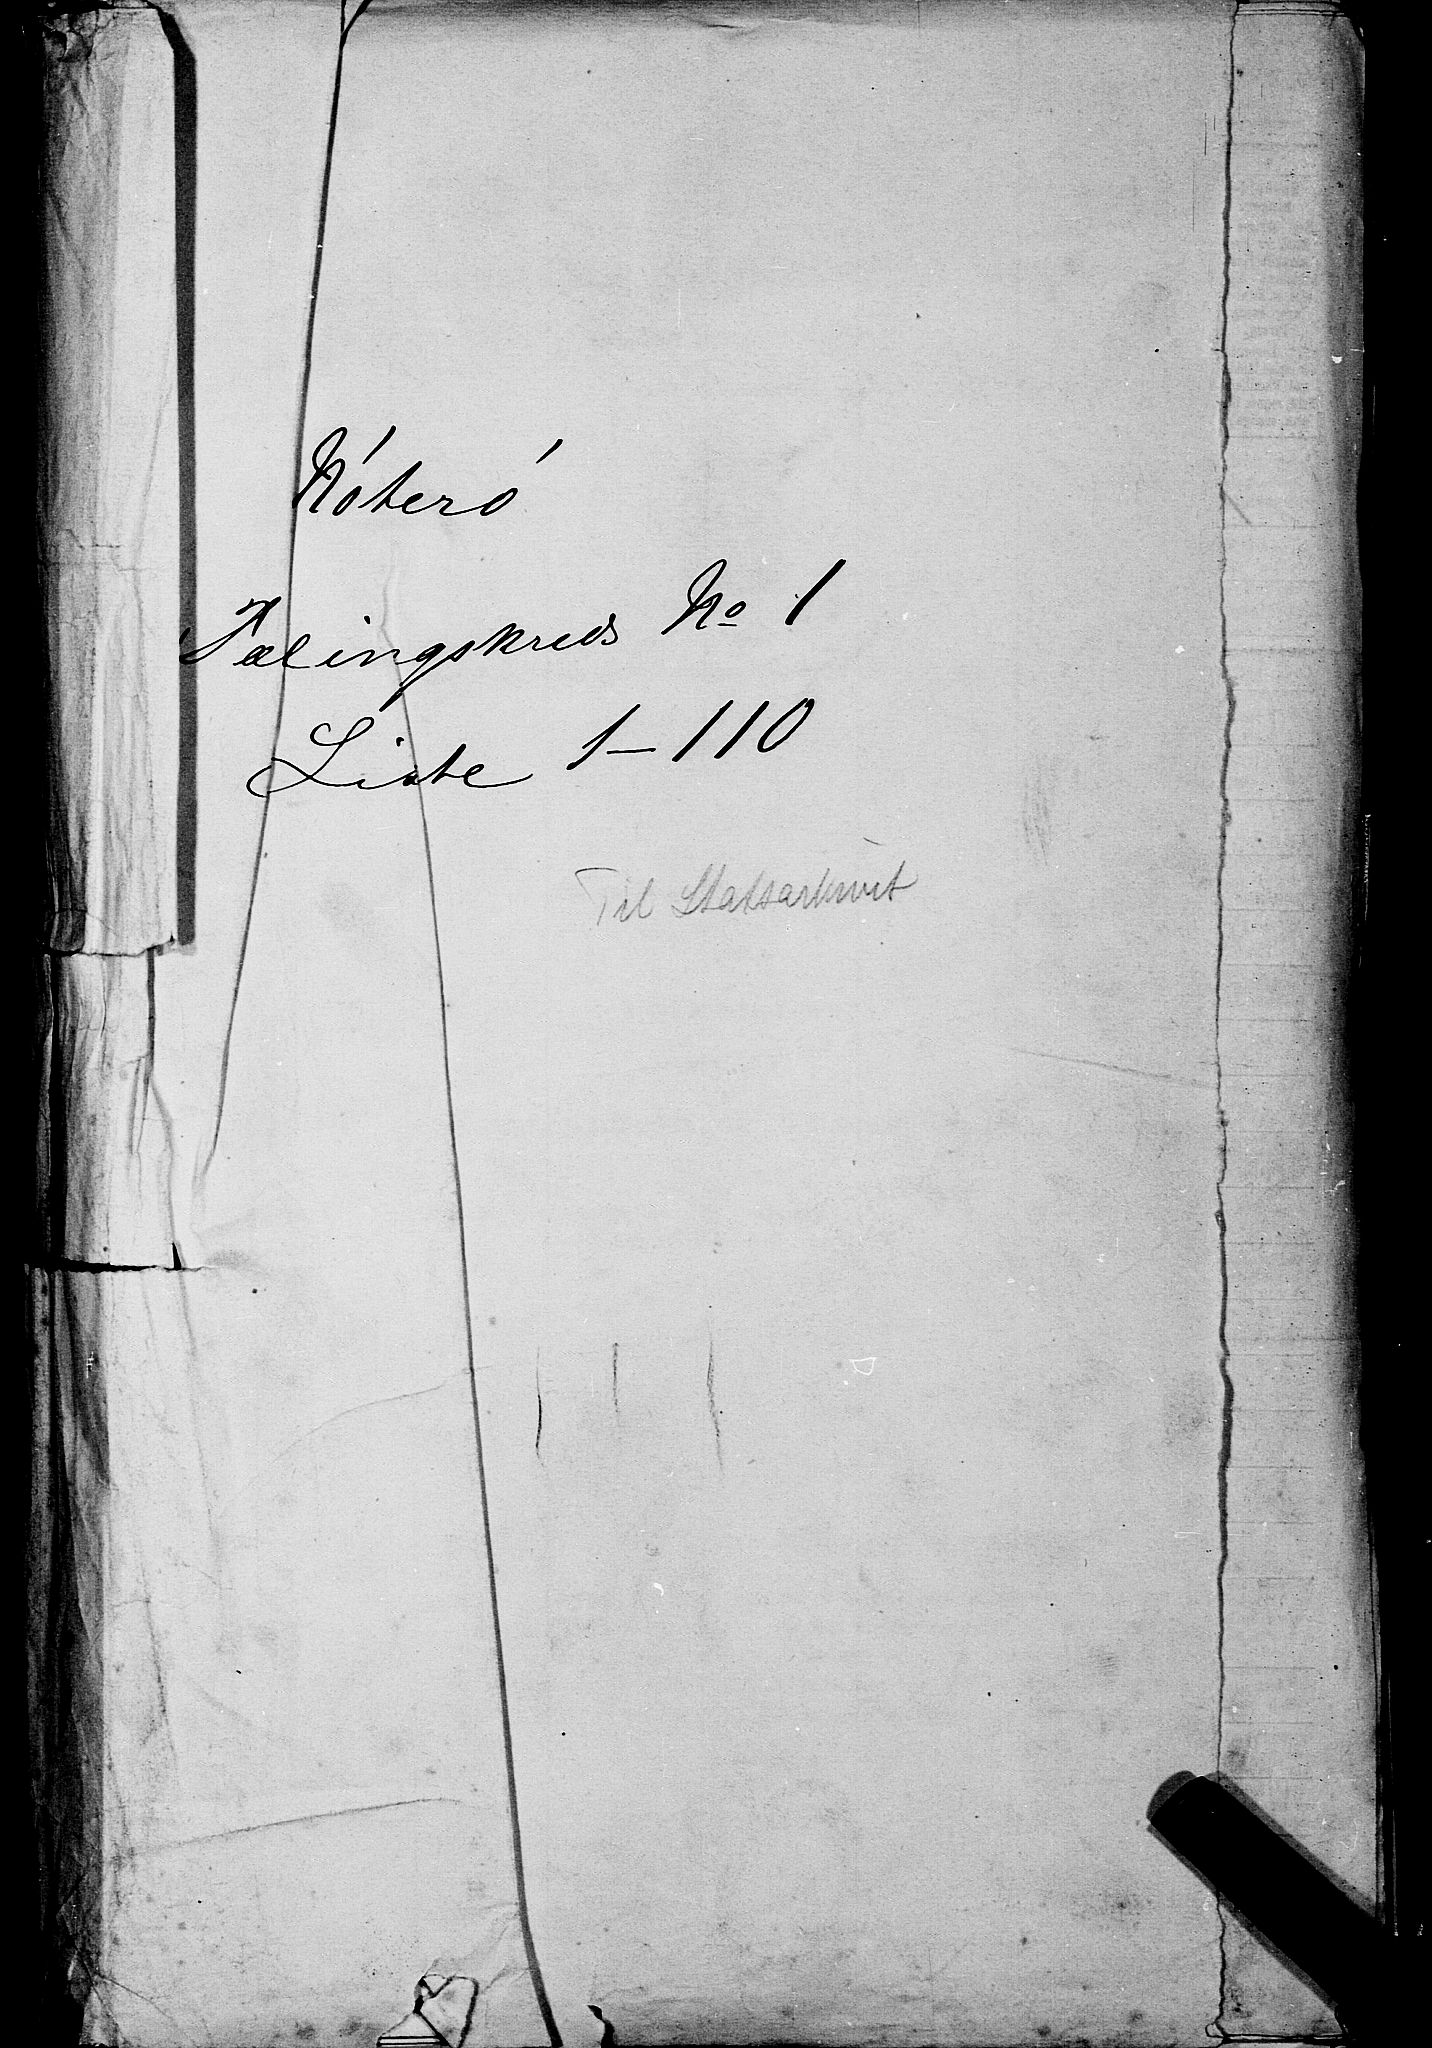 Nóteró
Tælingskreds No 1
Liste 1–110
Til Statsarkivet